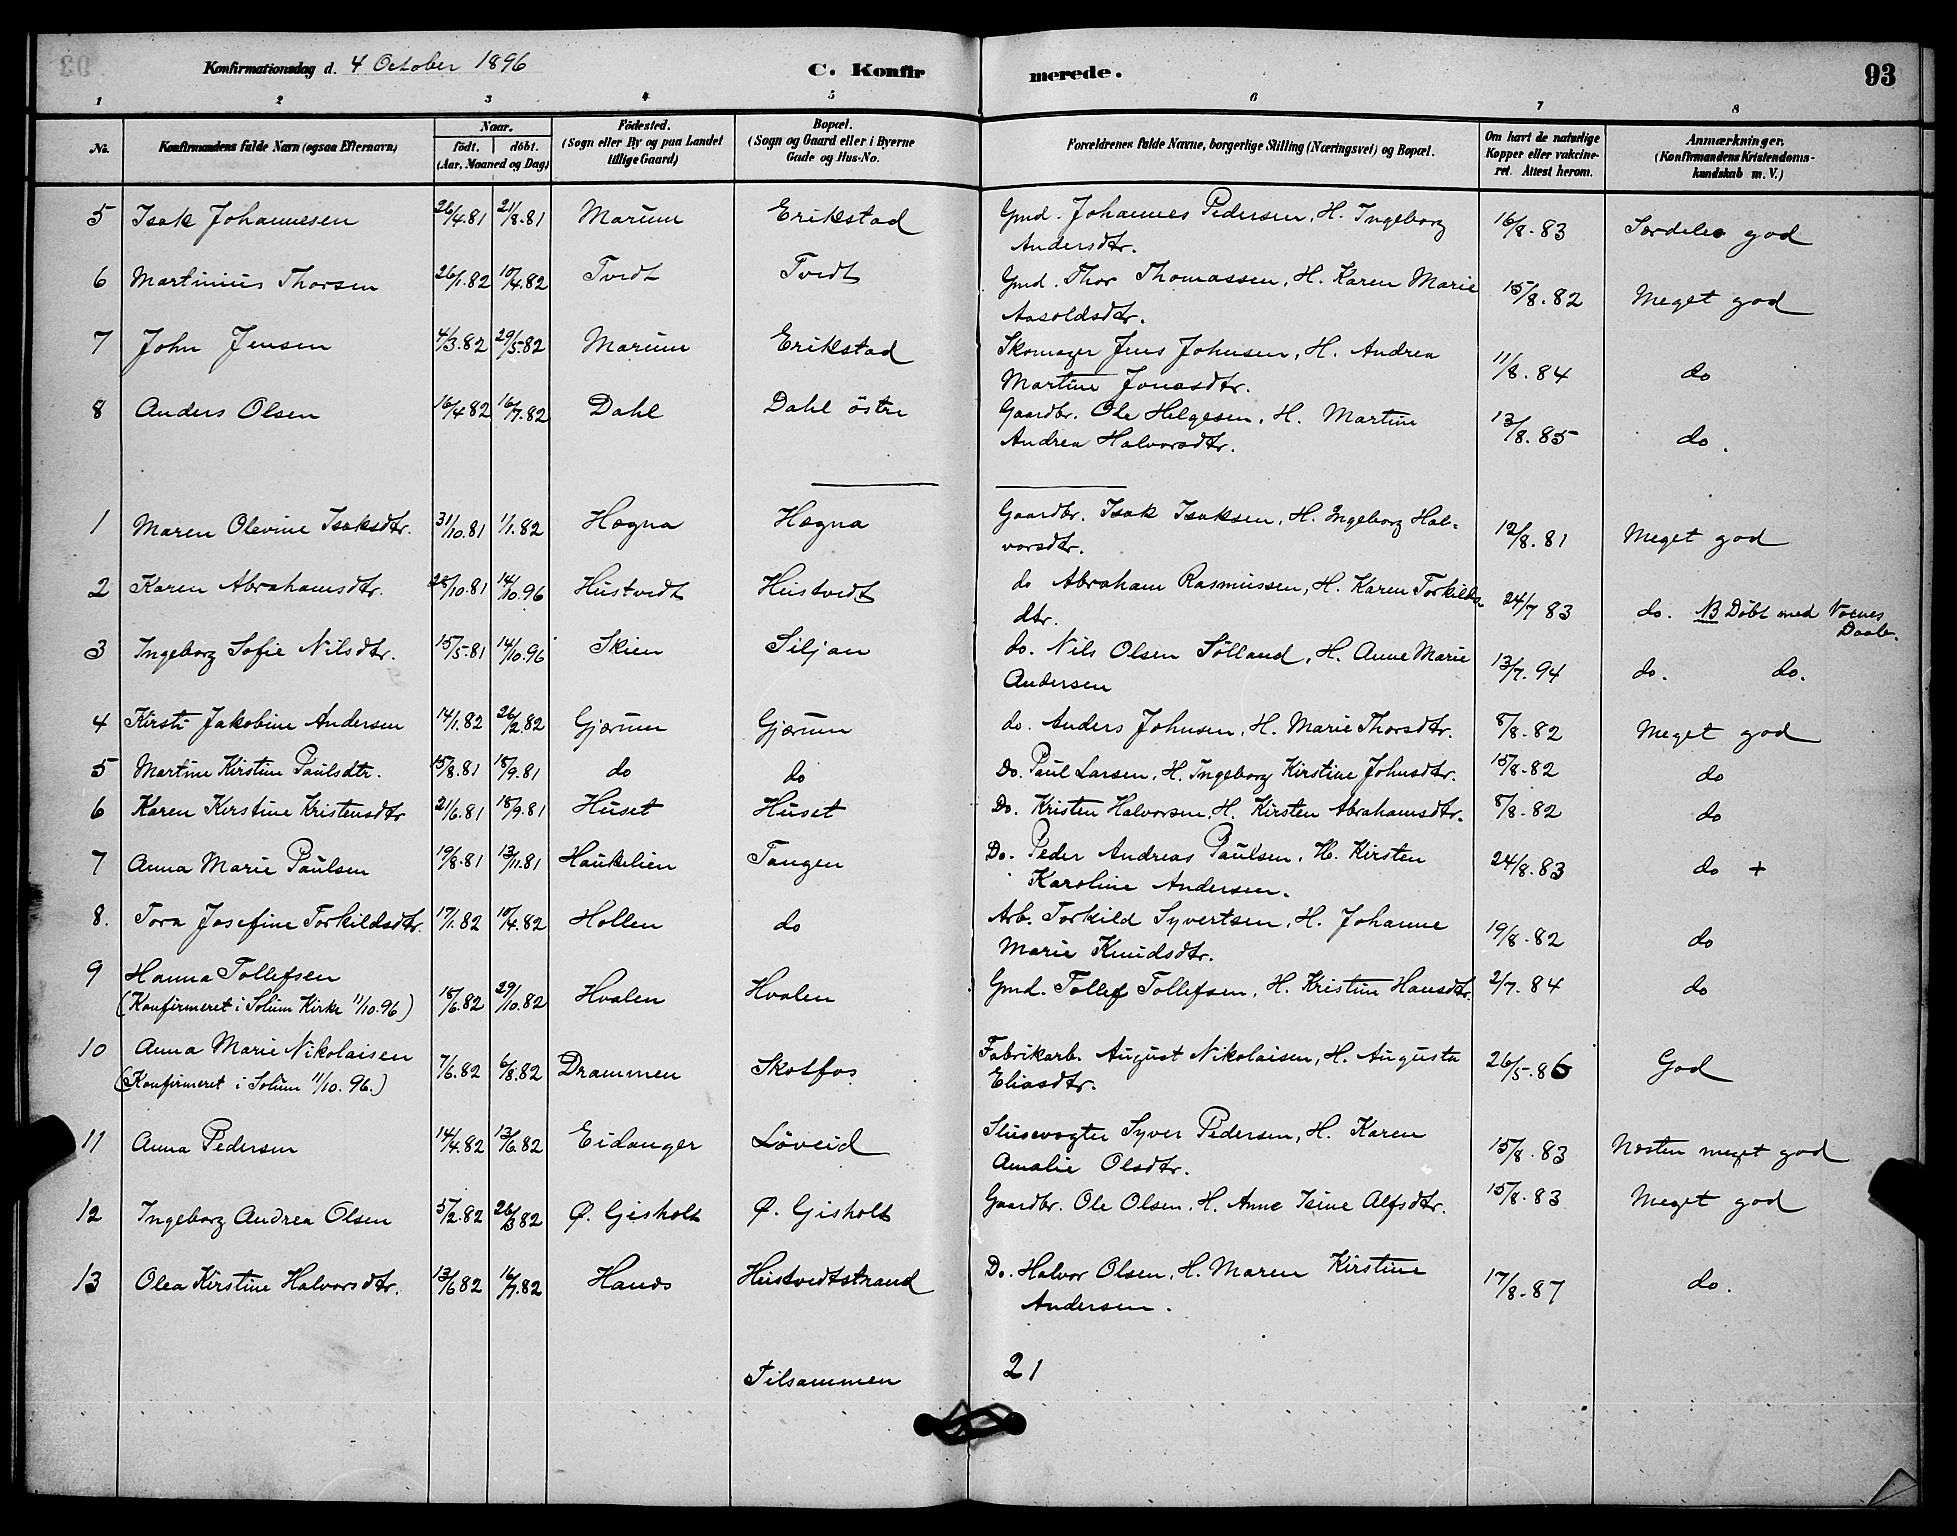 Konfirmationsdag d. 4 October 1896 C. Konfirmerede. 93
1 2 3 4 5 6 7 8
No. Konfirmandens fulde Navn (ogsaa Efternavn) Naar. født. døbt. (Aar, Maaned og Dag) Födested. (Sogn eller By og paa Landet tillige Gaard) Bopæl. (Sogn og Gaard eller i Byerne Gade og Hus-No. Forældrenes fulde Navne, borgerlige Stilling (Næringsvei) og Bopæl. Om havt de naturlige Kopper eller vakcineret. Attest herom. Anmærkninger. (Konfirmandens Kristendomskundskab m. V.)
5 Isak Johannesen 26/4.81 21/8.81 Marum Erikstad Gmd. Johannes Pedersen, H. Ingeborg 16/8.83 Særdeles god
Andersdtr.
6 Martinius Thorsen 26/1.82 10/4.82 Tvedt Tvedt Gmd. Thor Thomassen, H. Karen Marie 15/8.82 Meget god
Aasoldsdtr.
7 John Jensen 4/3.82 29/5.82 Marum Erikstad Skomager Jens Johnsen, H. Andrea 11/8.84 do
Martine Jonasdtr.
8 Anders Olsen 16/4.82 16/7.82 Dahl Dahl östre Gaardbr. Ole Helgesen, H. Martine 13/8.85 do.
Andrea Halvorsdtr.
1 Maren Olevine Isaksdtr. 31/10.81 1/1.82 Hogna Hogna Gaardbr. Isak Isaksen, H. Ingeborg Hal- 12/8.81 Meget god
vorsdtr.
2 Karen Abrahamsdtr. 28/10.81 14/10.96 Hustvedt Hustvedt do Abraham Rasmussen, H. Karen Torkilds- 24/7 83 do. NB Döbt med Voxnes
dtr. Daab.
3 Ingeborg Sofie Nilsdtr. 15/5.81 14/10.96 Skien Siljan do. Nils Olsen Sölland, H. Anne Marie 13/7.94 do. do.
Andersen
4 Kirsti Jakobine Andersen 14/1.82 26/2.82 Gjærum Gjærum do. Anders Johnsen, H. Marie Thorsdtr. 8/8.82 Meget god
5 Martine Kirstine Paulsdtr. 15/8.81 18/9.81 do do Do. Paul Larsen, H. Ingeborg Kirstine Johnsdtr. 15/8.82 do
6 Karen Kirstine Kristensdtr 21/6.81 18/9.81 Huset Huset Do. Kristen Halvorsen, H. Kirsten Abrahamsdtr. 8/8.82 do
7 Anna Marie Paulsen 19/8.81 13/11.81 Haukelien Tangen Do. Peder Andreas Paulsen, H. Kirsten 24/8.83 do +
Karoline Andersen.
8. Tora Josefine Torkildsdtr. 17/1.82 10/4.82 Hollen do Arb. Torkild Syvertsen, H. Johanne 19/8.82 do
Marie Knudsdtr.
9 Hanna Tollefsen
(Konfirmeret i Solum Kirke 11/10.96) 18/6.82 29/10.82 Hvalen Hvalen Gmd. Tollef Tollefsen, H. Kristine Hansdtr. 2/7.84 do
10 Anna Marie Nikolaisen 7/6.82 6/8.82 Drammen Skotfos Fabrikarb. August Nikolaisen, H. Augusta 26/5.86 God
(Konfirmeret i Solum 11/10.96.) Eliasdtr.
11 Anna Pedersen 14/4.82 13/6.82 Eidanger Löveid Slusevogter Syver Pedersen, H. Karen 15/8.83 Næsten meget god
Amalie Olsdtr.
12 Ingeborg Andrea Olsen 5/2.82 26/3 82 Ø. Gisholt Ø. Gisholt Gaardbr. Ole Olsen, H. Anne Isine Alfsdtr. 15/8.83 Meget god
13 Olea Kirstine Halvorsdtr. 13/6 82 16/7.82 Hands Hustvedtstrand Do. Halvor Olsen, H. Maren Kirstine 17/8.87 do.
Andersen.
Tilsammen 21